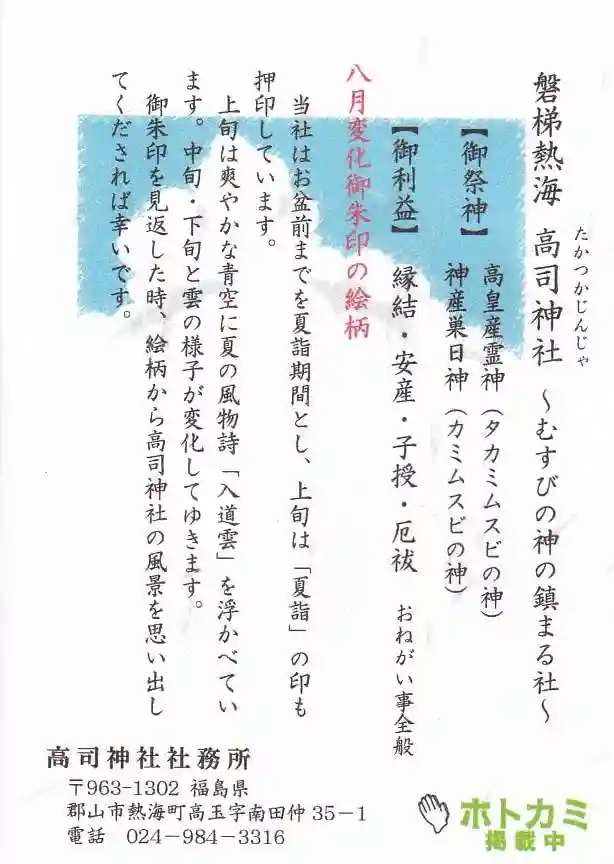 たかつかじんじゃ
磐梯熱海 高司神社 ～むすびの神の鎮まる社～
【御祭神】 高皇産霊神(タカミムスビの神)
神産巣日神(カミムスビの神)
【御利益】 縁結・安産・子授・厄祓 おねがい事全般
八月変化御朱印の絵柄
当社はお盆前までを夏詣期間とし、上旬は「夏詣」の印も
押印しています。
上旬は爽やかな青空に夏の風物詩「入道雲」を浮かべてい
ます。中旬・下旬と雲の様子が変化してゆきます。
御朱印を見返した時、絵柄から高司神社の風景を思い出し
てくだされば幸いです。
高司神社社務所
〒963-1302 福島県
郡山市熱海町高玉字南田仲35-1
電話 024-984-3316
ホトカミ
掲載中